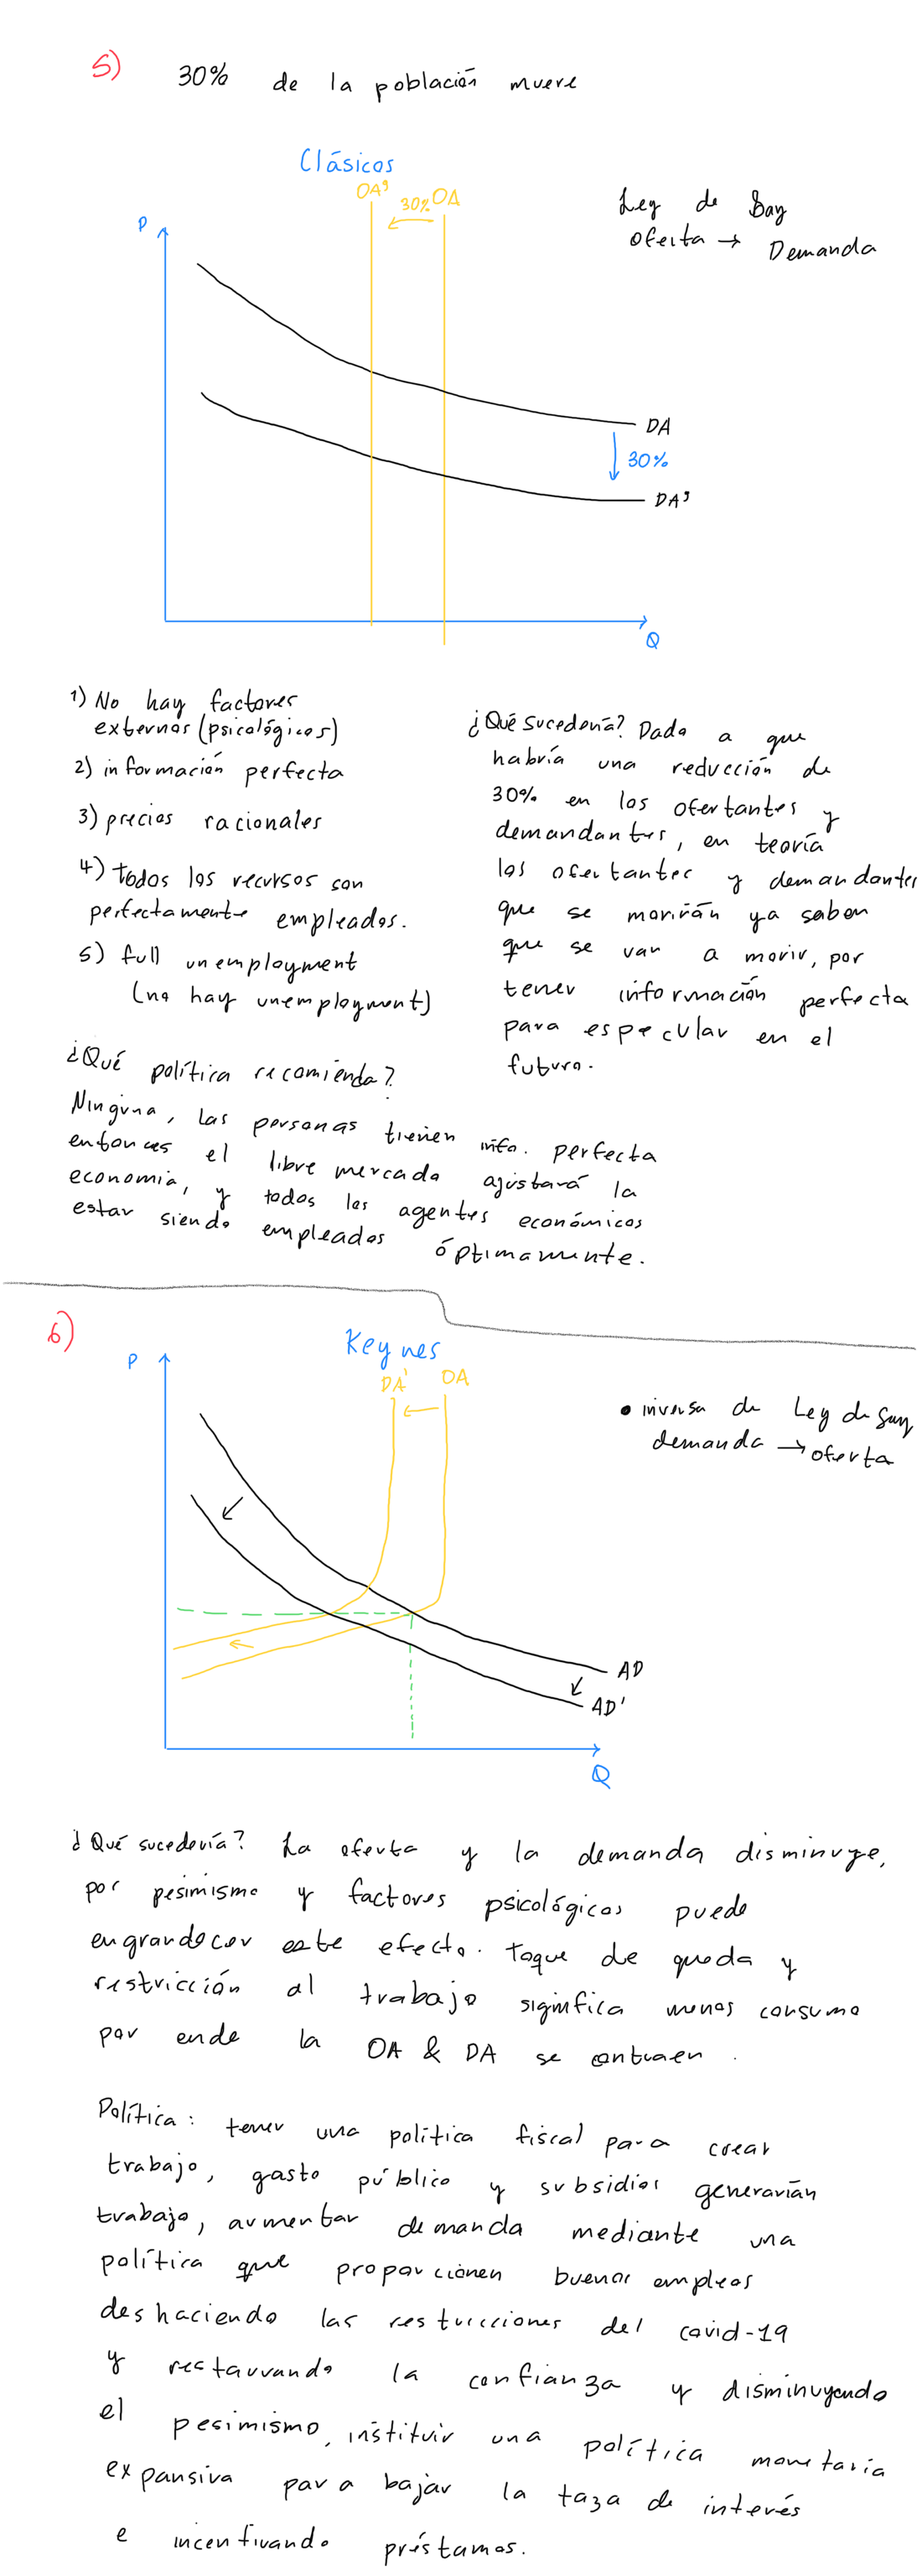 5) 30% de la población muere
Clásicos
OA' 30% OA
P
Ley de Say
oferta → Demanda
DA
30%
DA'
Q
1) No hay factores
externos (psicológicos)
2) información perfecta
3) precios racionales
4) todos los recursos son
perfectamente empleados.
5) full unemployment
(no hay unemployment)
¿Qué sucedería? Dado a que
habría una reducción de
30% en los ofertantes y
demandantes, en teoría
los ofertantes y demandantes
que se morirán ya saben
que se van a morir, por
tener información perfecta
para especular en el
futuro.
¿Qué política recomienda?
Ninguna, las personas tienen info. perfecta
entonces el libre mercado ajustará la
economía, y todos los agentes económicos
estar siendo empleados óptimamente.
6)
Keynes
P
DA' OA
• inversa de Ley de Say
demanda → oferta
AD
AD'
Q
¿Qué sucedería? La oferta y la demanda disminuye,
por pesimismo y factores psicológicos puede
engrandecer este efecto. Toque de queda y
restricción al trabajo significa menos consumo
por ende la OA & DA se contraen.
Política: tener una política fiscal para crear
trabajo, gasto público y subsidios generarían
trabajo, aumentar demanda mediante una
política que proporcionen buenos empleos
deshaciendo las restricciones del covid-19
y restaurando la confianza y disminuyendo
el pesimismo, instituir una política monetaria
expansiva para bajar la taza de interés
e incentivando préstamos.